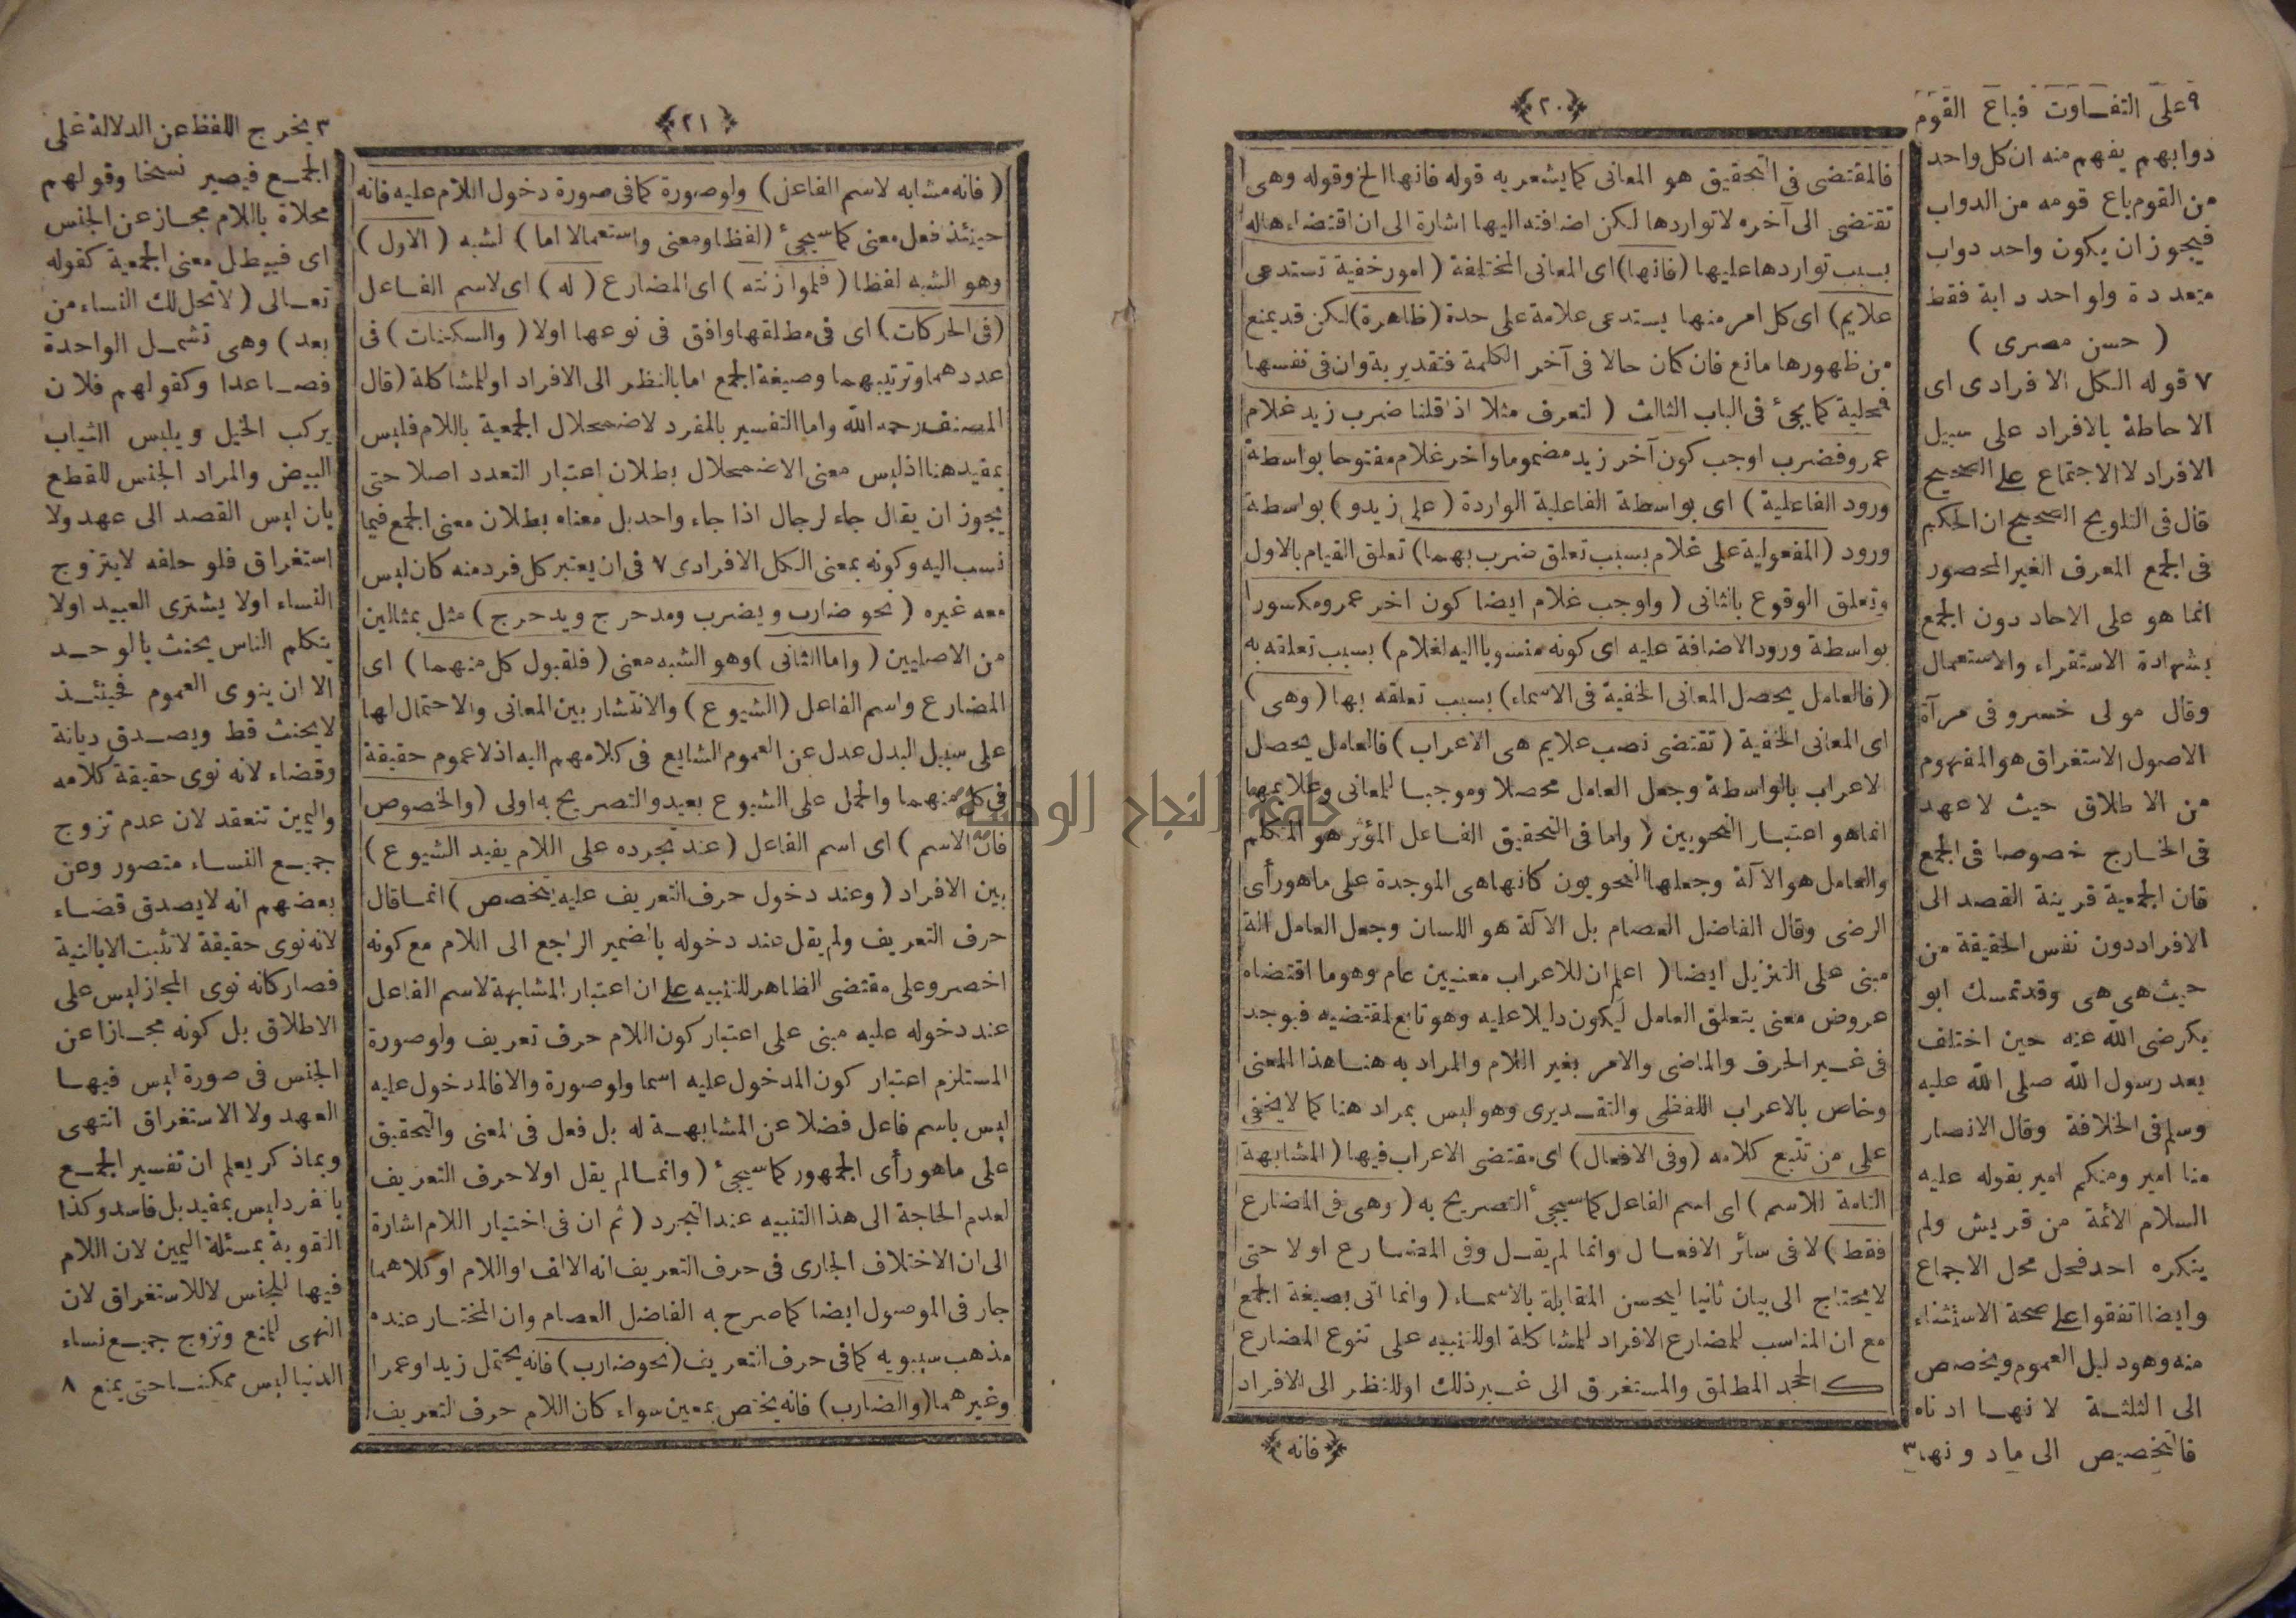 ﴿٢٠﴾
فالمقتضى فى التحقيق هو المعانى كما يشعر به قوله فانها الخ وقوله وهى
تقتضى الى آخره لا تواردها لكن اضافته اليها اشارة الى ان اقتضاءها له
بسبب تواردها عليها (فانها) اى المعانى المختلفة (امور خفية تستدعى
علايم) اى كل امر منها يستدعى علامة على حدة (ظاهرة) لكن قد يمنع
من ظهورها مانع فان كان حالا فى آخر الكلمة فتقديرية وان فى نفسها
فمحلية كما يجئ فى الباب الثالث (لتعرف مثلا اذا قلنا ضرب زيد غلام
عمرو فضرب اوجب كون آخر زيد مضموما وآخر غلام مفتوحا بواسطة
ورود الفاعلية) اى بواسطة الفاعلية الواردة (على زيد و) بواسطة
ورود (المفعولية على غلام بسبب تعلق ضرب بهما) تعلق القيام بالاول
وتعلق الوقوع بالثانى (واوجب غلام ايضا كون اخر عمرو مكسورا
بواسطة ورود الاضافة عليه اى كونه منسوبا اليه لغلام) بسبب تعلقه به
(فالعامل يحصل المعانى الخفية فى الاسماء) بسبب تعلقه بها (وهى)
اى المعانى الخفية (تقتضى نصب علايم هى الاعراب) فالعامل يحصل
لاعراب بالواسطة وجعل العامل محصلا وموجبا للمعانى وعلايمها
انما هو اعتبار النحويين (واما فى التحقيق الفاعل المؤثر هو المتكلم
والعامل هو الآلة وجعلها النحويون كانها هى الموجدة على ما هو رأى
الرضى وقال الفاضل العصام بل الآلة هو اللسان وجعل العامل الة
مبنى على التنزيل ايضا (اعلم ان للاعراب معنيين عام وهو ما اقتضاه
عروض معنى بتعلق العامل ليكون دليلا عليه وهو تابع لمقتضيه فيوجد
فى غير الحرف والماضى والامر بغير اللام والمراد به هنا هذا المعنى
وخاص بالاعراب اللفظى والتقديرى وهو ليس بمراد هنا كما لا يخفى
على من تتبع كلامه (وفى الافعال) اى مقتضى الاعراب فيها (المشابهة
التامة للاسم) اى اسم الفاعل كما سيجئ التصريح به (وهى فى المضارع
فقط) لا فى سائر الافعال وانما لم يقل وفى المضارع اولا حتى
لا يحتاج الى بيان ثانيا ليحسن المقابلة بالاسماء (وانما اتى بصيغة الجمع
مع ان المناسب للمضارع الافراد للمشاكلة او للتنبيه على تنوع المضارع
كالجحد المطلق والمستغرق الى غير ذلك او للنظر الى الافراد
﴿فانه﴾
٩ على التفاوت فباع القوم
دوابهم يفهم منه ان كل واحد
من القوم باع قومه من الدواب
فيجوز ان يكون واحد دواب
متعددة ولواحد دابة فقط
(حسن مصرى)
٧ قوله الكل الافرادى اى
الاحاطة بالافراد على سبيل
الافراد لا الاجتماع على الصحيح
قال فى التلويح الصحيح ان الحكم
فى الجمع المعرف الغير المحصور
انما هو على الاحاد دون الجمع
بشهادة الاستقراء والاستعمال
وقال مولى خسرو فى مرآة
الاصول الاستغراق هو المفهوم
من الاطلاق حيث لا عهد
فى الخارج خصوصا فى الجمع
فان الجمعية قرينة القصد الى
الافراد دون نفس الحقيقة من
حيث هى هى وقد تمسك ابو
بكر رضى الله عنه حين اختلف
بعد رسول الله صلى الله عليه
وسلم فى الخلافة وقال الانصار
منا امير ومنكم امير بقوله عليه
السلام الائمة من قريش ولم
ينكره احد فحل محل الاجماع
وايضا اتفقوا على صحة الاستثناء
منه وهو دليل العموم ويخصص
الى الثلثة لانها ادناه
فالتخصيص الى ما دونها ٣
﴿٢١﴾
(فانه مشابه لاسم الفاعل) ولو صورة كما فى صورة دخول اللام عليه فانه
حينئذ فعل معنى كما سيجئ (لفظا ومعنى واستعمالا اما) لشبه (الاول)
وهو الشبه لفظا (فلموازنته) اى المضارع (له) اى لاسم الفاعل
(فى الحركات) اى فى مطلقها وافق فى نوعها اولا (والسكنات) فى
عددهما وترتيبهما وصيغة الجمع اما بالنظر الى الافراد او للمشاكلة (قال
المصنف رحمه الله واما التفسير بالمفرد لاضمحلال الجمعية باللام فليس
بمفيد هنا اذ ليس معنى الاضمحلال بطلان اعتبار التعدد اصلا حتى
يجوز ان يقال جاء لرجال اذا جاء واحد بل معناه بطلان معنى الجمع فيما
نسب اليه وكونه بمعنى الكل الافرادى ٧ فى ان يعتبر كل فرد منه كان ليس
معه غيره (نحو ضارب ويضرب ومدحرج ويدحرج) مثل بمثالين
من الاصليين (واما الثانى) وهو الشبه معنى (فلقبول كل منهما) اى
المضارع واسم الفاعل (الشيوع) والانتشار بين المعانى والاحتمال لها
على سبيل البدل عدل عن العموم الشايع فى كلامهم اليه اذ لا عموم حقيقة
فى كل منهما والحمل على الشيوع بعيد والتصريح به اولى (والخصوص
فان الاسم) اى اسم الفاعل (عند تجرده على اللام يفيد الشيوع)
بين الافراد (وعند دخول حرف التعريف عليه يتخصص) انما قال
حرف التعريف ولم يقل عند دخوله بالضمير الراجع الى اللام مع كونه
اخصر وعلى مقتضى الظاهر للتنبيه على ان اعتبار المشابهة لاسم الفاعل
عند دخوله عليه مبنى على اعتبار كون اللام حرف تعريف ولو صورة
المستلزم اعتبار كون المدخول عليه اسما ولو صورة والا فالمدخول عليه
ليس باسم فاعل فضلا عن المشابهة له بل فعل فى المعنى والتحقيق
على ما هو رأى الجمهور كما سيجئ (وانما لم يقل اولا حرف التعريف
لعدم الحاجة الى هذا التنبيه عند التجرد (ثم ان فى اختيار اللام اشارة
الى ان الاختلاف الجارى فى حرف التعريف انه الالف او اللام او كلاهما
جار فى الموصول ايضا كما صرح به الفاضل العصام وان المختار عنده
مذهب سيبويه كما فى حرف التعريف (نحو ضارب) فانه يحتمل زيدا وعمرا
وغيرهما (والضارب) فانه يختص بمعين سواء كان اللام حرف التعريف
٣ يخرج اللفظ عن الدلالة على
الجمع فيصير نسخا وقولهم
محلاة باللام مجاز عن الجنس
اى فيبطل معنى الجمعية كقوله
تعالى (لا تحل لك النساء من
بعد) وهى تشمل الواحدة
فصاعدا وكقولهم فلان
يركب الخيل ويلبس الثياب
البيض والمراد الجنس للقطع
بان ليس القصد الى عهد ولا
استغراق فلو حلفه لا يتزوج
النساء اولا يشترى العبيد اولا
يتكلم الناس يحنث بالوحد
الا ان ينوى العموم فحينئذ
لا يحنث قط ويصدق ديانة
وقضاء لانه نوى حقيقة كلامه
واليمين تنعقد لان عدم تزوج
جميع النساء متصور وعن
بعضهم انه لا يصدق قضاء
لانه نوى حقيقة لا تثبت الا بالنية
فصار كانه نوى المجاز ليس على
الاطلاق بل كونه مجازا عن
الجنس فى صورة ليس فيها
العهد ولا الاستغراق انتهى
وبما ذكر يعلم ان تفسير الجمع
بالفرد ليس بمفيد بل فاسد وكذا
التقوية بمسئلة اليمين لان اللام
فيها للجنس لا للاستغراق لان
النهى لمنع وتزوج جميع نساء
الدنيا ليس ممكنا حتى يمنع ٨
جامعة النجاح الوطنية